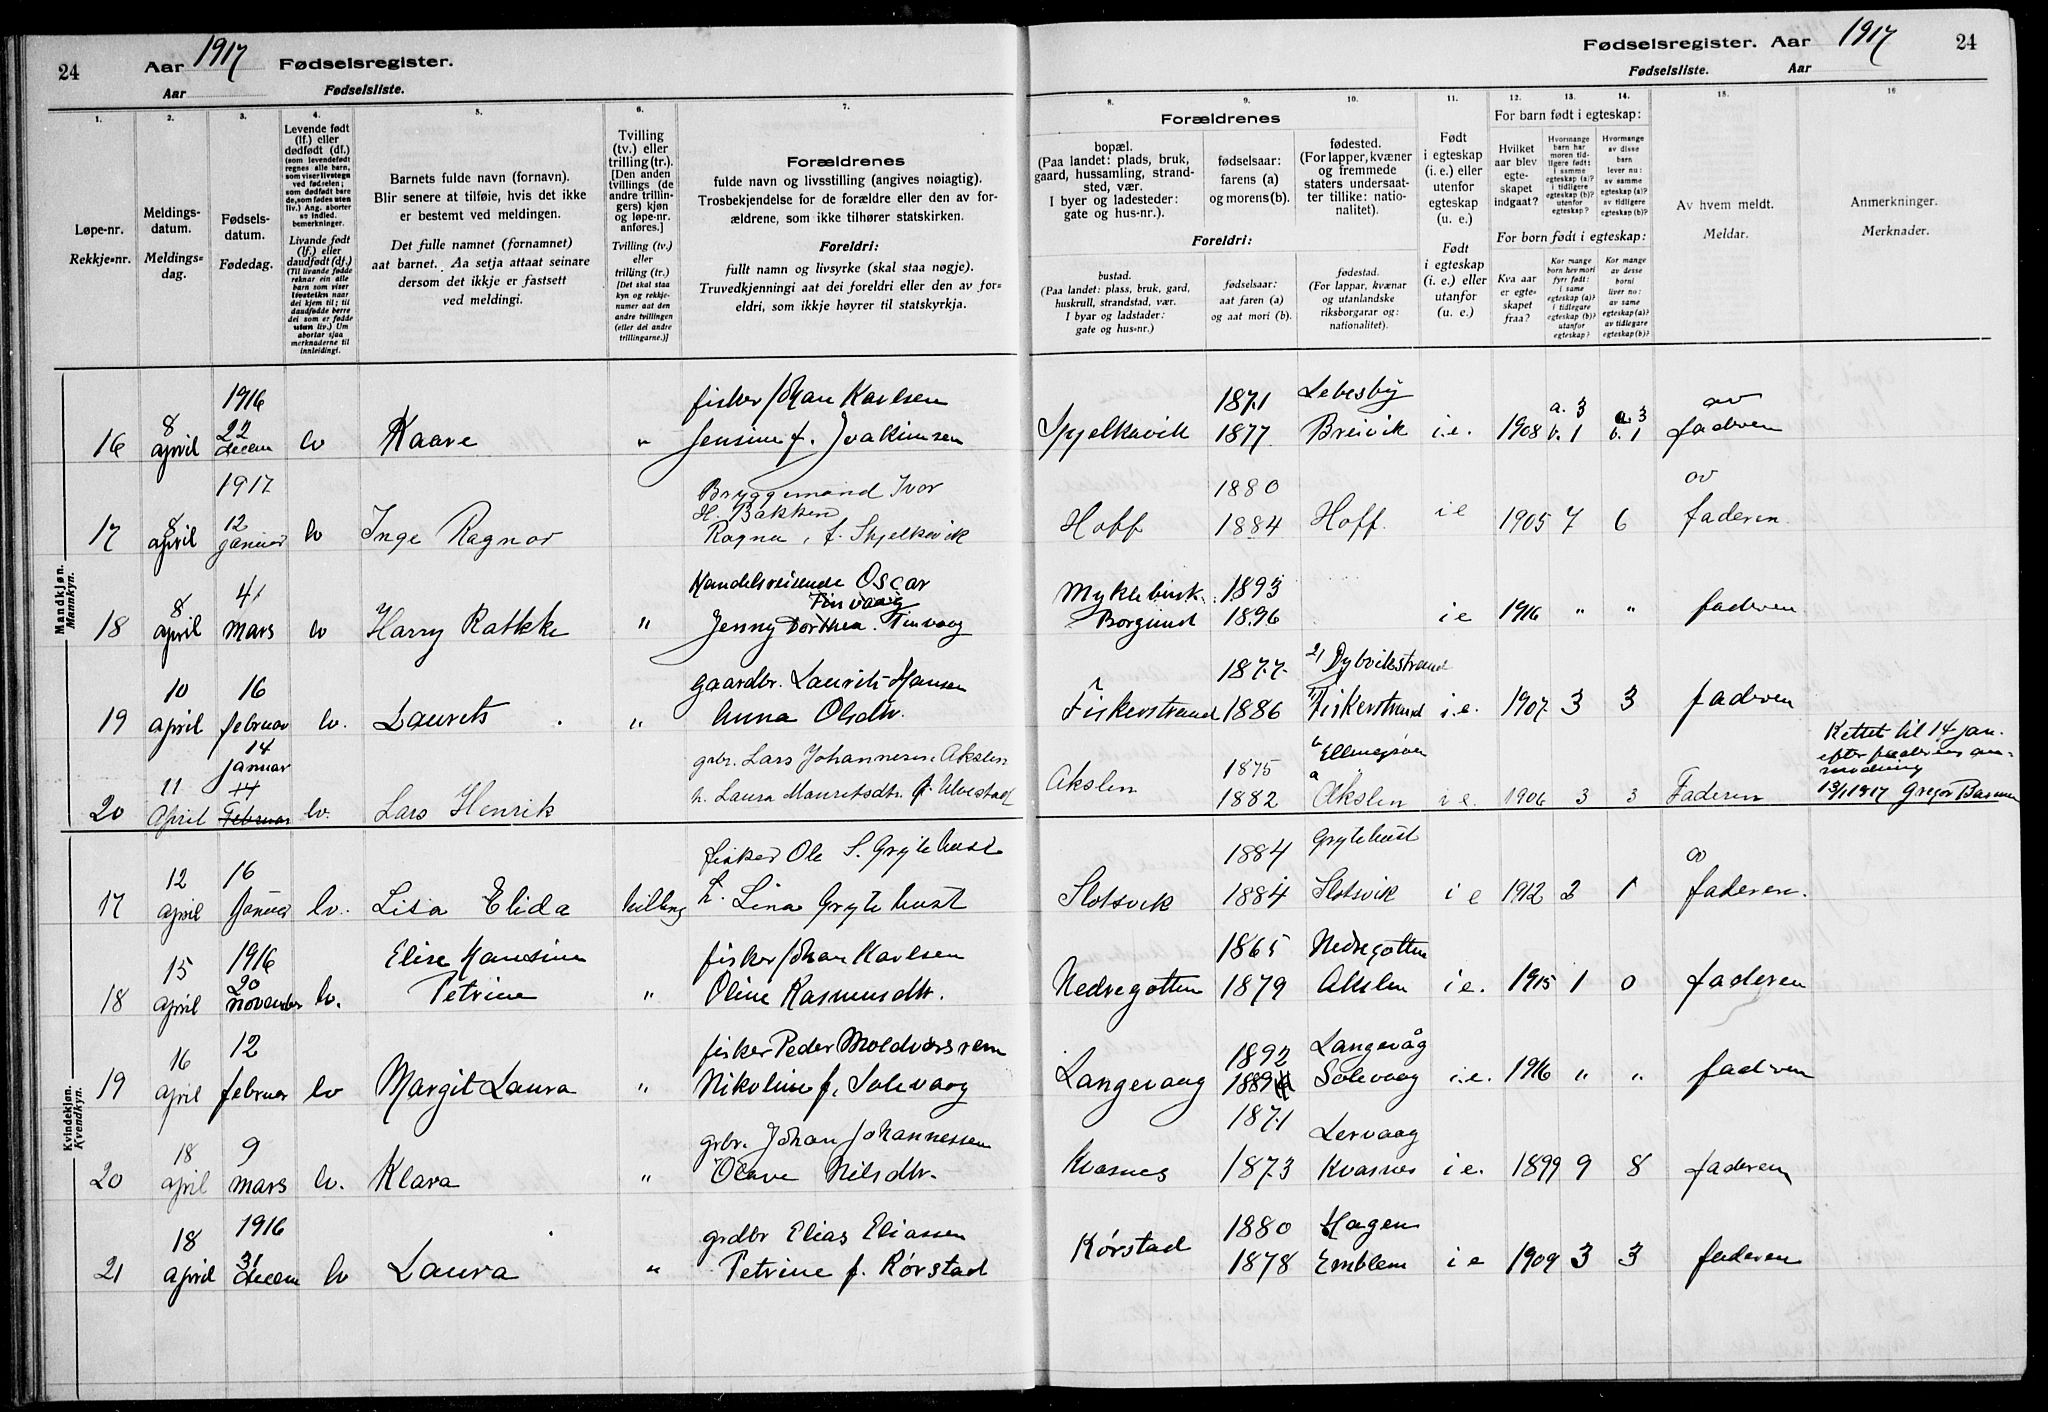 24 Aar 1917 Fødselsregister.
Aar Fødselsliste.
Fødselsregister. Aar 1917 24
Fødselsliste. Aar
1. 2. 3. 4. 5. 6. 7.
Løpe-nr.
Rekkje-nr.
Meldings-
datum.
Meldings-
dag.
Fødsels-
datum.
Fødedag.
Levende født
(lf.) eller
dødfødt (df.)
(som levendefødt
regnes alle barn,
som viser livstegn
ved fødselen;
som dødfødt bare
de, som fødes uten
liv.) Ang. aborter
se indled.
bemerkninger.
Livande født
(lf.) eller
daudfødt (df.)
(Til livande fødde
reknar ein alle
barn som viser
livsteikn naar
dei kjem til; til
daudfødde berre
dei som er fødde
utan liv.) Um
abortar sjaa
merknaderne til
innleidingi.
Barnets fulde navn (fornavn).
Blir senere at tilføie, hvis det ikke
er bestemt ved meldingen.
Det fulle namnet (fornamnet)
aat barnet. Aa setja attaat seinare
dersom det ikkje er fastsett
ved meldingi.
Tvilling
(tv.) eller
trilling (tr.).
[Den anden
tvillings (de
andre trillin-
gers) kjøn
og løpe-nr.
anføres.]
Tvilling (tv.)
eller
trilling (tr.)
[Det skal staa
kyn og rekkje-
numer aat den
andre tvillingen
(eller dei andre
trillingarne.)]
Forældrenes
fulde navn og livsstilling (angives nøiagtig).
Trosbekjendelse for de forældre eller den av for-
ældrene, som ikke tilhører statskirken.
Foreldri:
fullt namn og livsyrke (skal staa nøgje).
Truvedkjenningi aat dei foreldri eller den av for-
eldri, som ikkje høyrer til statskyrkja.
8. 9. 10. 11. 12. 13. 14. 15. 16
Forældrenes
bopæl.
(Paa landet: plads, bruk,
gaard, hussamling, strand-
sted, vær.
I byer og ladesteder:
gate og hus-nr.).
fødselsaar:
farens (a)
og morens (b).
fødested.
(For lapper, kvæner
og fremmede
staters undersaat-
ter tillike: natio-
nalitet).
Foreldri:
bustad.
(Paa landet: plass, bruk, gard,
huskrull, strandstad, vær.
I byar og ladstader:
gate og hus-nr.)
fødselsaar:
aat faren (a)
og aat mori (b).
fødestad.
(For lappar, kvænar
og utanlandske
riksborgarar og:
nationalitet).
Født
i egteskap
(i. e.) eller
utenfor
egteskap
(u. e.)
Født
i egteskap
(i. e.) eller
utanfor
egteskap
(u. e.)
For barn født i egteskap:
Hvilket
aar blev
egte-
skapet
indgaat?
Hvormange
barn har
moren tid-
ligere født:
i samme
egteskap (a)?
i tidligere
egteskap (b)?
utenfor
egteskap?
Hvormange
av disse
barn
lever nu:
av samme
egteskap (a)?
av tidligere
egteskap (b)?
For born født i egteskap:
Kva aar
er egte-
skapet
fraa?
Kor mange
born hev mori
fyrr født:
i same
egteskap (a)?
i tidlegare
egteskap (b)?
utanfor
egteskap?
Kor mange
av desse
borni
liver no:
av same
egteskap (a)?
av tidlegare
egteskap (b)?
Av hvem meldt.
Meldar.
Anmerkninger.
Merknader.
Mandkjøn.
Mannkyn.
1916 fisker Johan Karlsen 1871 Lebesby a. 3 a. 3 av
16 8 april 22 decem lv Kaare " Jensine f. Joakimsen Spjelkavik 1877 Breivik i.e. 1908 b. 1 b. 1 faderen
1917 Bryggemand Ivor 1880 av
H. Bakken
17 8 april 12 januar lv Inge Ragnar Ragna, f. Spjelkavik Hoff 1884 Hoff. i e 1905 7 6 faderen.
4/ Handelsreisende Oscar Myklebust 1893
Tinvaag
18 8 april mars lv Harry Ratkke " Jenny Dorthea Tinvaag Borgund 1896 i e 1916 " " faderen
gaardbr. Laurits Hansen 1877 Dybvikstrand
19 10 april 16 februar lv. Laurets " Anna Olsdtr. Fiskerstrand 1886 Fiskerstrand i.e. 1907 3 3 faderen
14 januar grbr. Lars Johannesen Akslen 1875 Ellingsøen Rettet til 14 jan.
efter faderens an-
modning
20 11 April 14 Februar lv. Lars Henrik h. Laura Mauritsdtr. f. Ulvestad Akslen 1882 Akslen i e 1906 3 3 Faderen 13/1 1917 Gregor
Kvindekjøn.
Kvendkyn.
fisker Ole S. Grytehust 1884 Grytehust av
17 12 april 16 Januar lv. Lisa Elida tvilling h. Lina Grytehust Slotsvik 1884 Slotsvik i e 1912 2 1 faderen.
1916 Elise Hansine fisker Johan Karlsen 1865 Nedregotten
18 15 april 20 november lv. Petrine " Oline Rasmusdtr. Nedregotten 1879 Akslen i e. 1915 1 0 faderen
fisker Peder Moldværsrem 1892 Langevåg
19 16 april 12 februar lv Margit Laura " Nikoline f. Solevaag Langevaag 1889 Solevaag i.e. 1916 " " faderen
grbr. Johan Johannessen 1871 Lervaag
20 18 april 9 mars lv. Klara " Olave Nilsdtr. Kvasnes 1873 Kvasnes i e. 1899 9 8 faderen
1916 grdbr Elias Eliassen 1880 Hagen
21 18 april 31 decem lv Laura " Petrine f. Rørstad Rørstad 1878 Emblem i e 1909 3 3 faderen